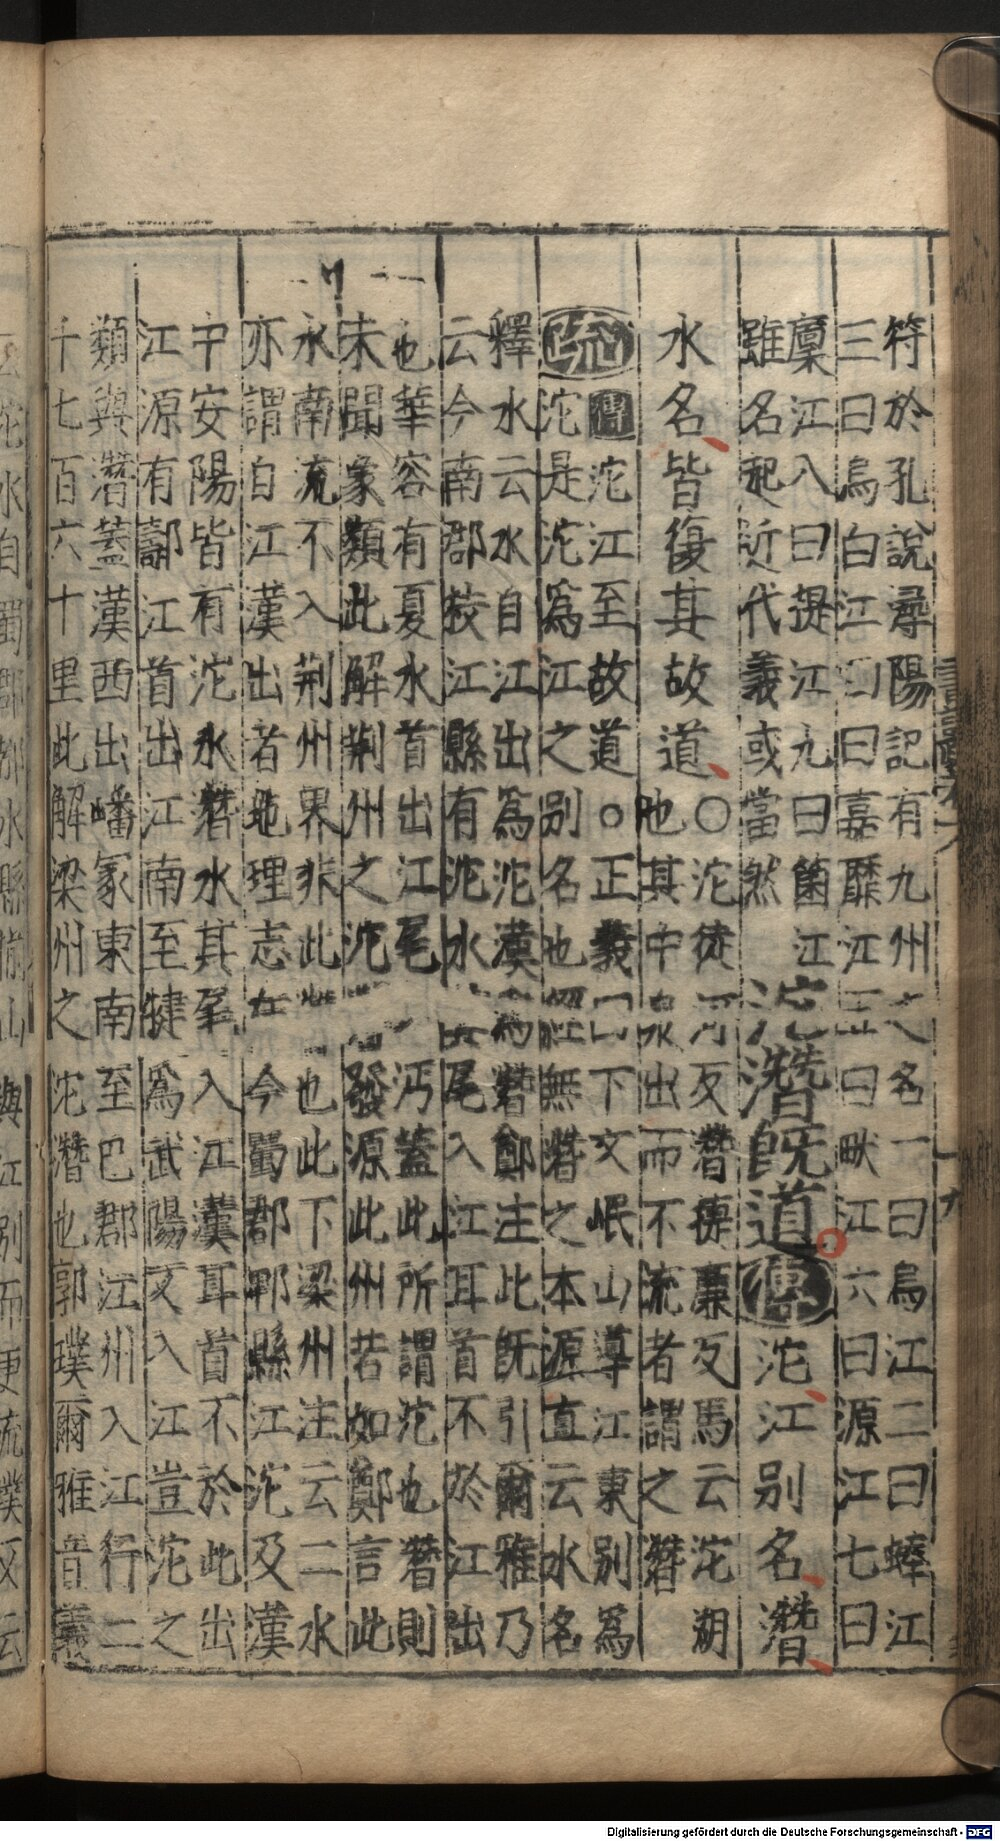 符於孔說㝷陽記有九州之名一曰烏江二曰蜯江
三曰烏白江四曰嘉靡江五曰畎江六曰源江七曰
廩江八曰提江九曰箘江
雖名起近代義或當然
沱潛既道傳沱江別名潛
水名皆復其故道
○沱徒河反潛揵廉反馬云沱湖
也其中泉出而不流者謂之潛
疏傳沱江至故道○正義曰下文岷山導江東別爲
沱是沱爲江之別名也經無潛之本源直云水名
釋水云水自江出爲沱漢爲潛鄭注此既引爾雅乃
云今南郡枝江縣有沱水其尾入江耳首不於江出
也華容有夏水首出江尾入沔蓋此所謂沱也潛則
未聞象類此解荆州之沱潛發源此州若如鄭言此
水南流不入荆州界非此潛也此下梁州注云二水
亦謂自江漢出者地理志在今蜀郡郫縣江沱及漢
中安陽皆有沱水潛水其尾入江漢耳首不於此出
江源有䣢江首出江南至犍爲武陽又入江豈沱之
類與潛蓋漢西出嶓冢東南至巴郡江州入江行二
千七百六十里此解梁州之沱潛也郭璞爾雅音義
Digitalisierung gefördert durch die Deutsche Forschungsgemeinschaft - DFG